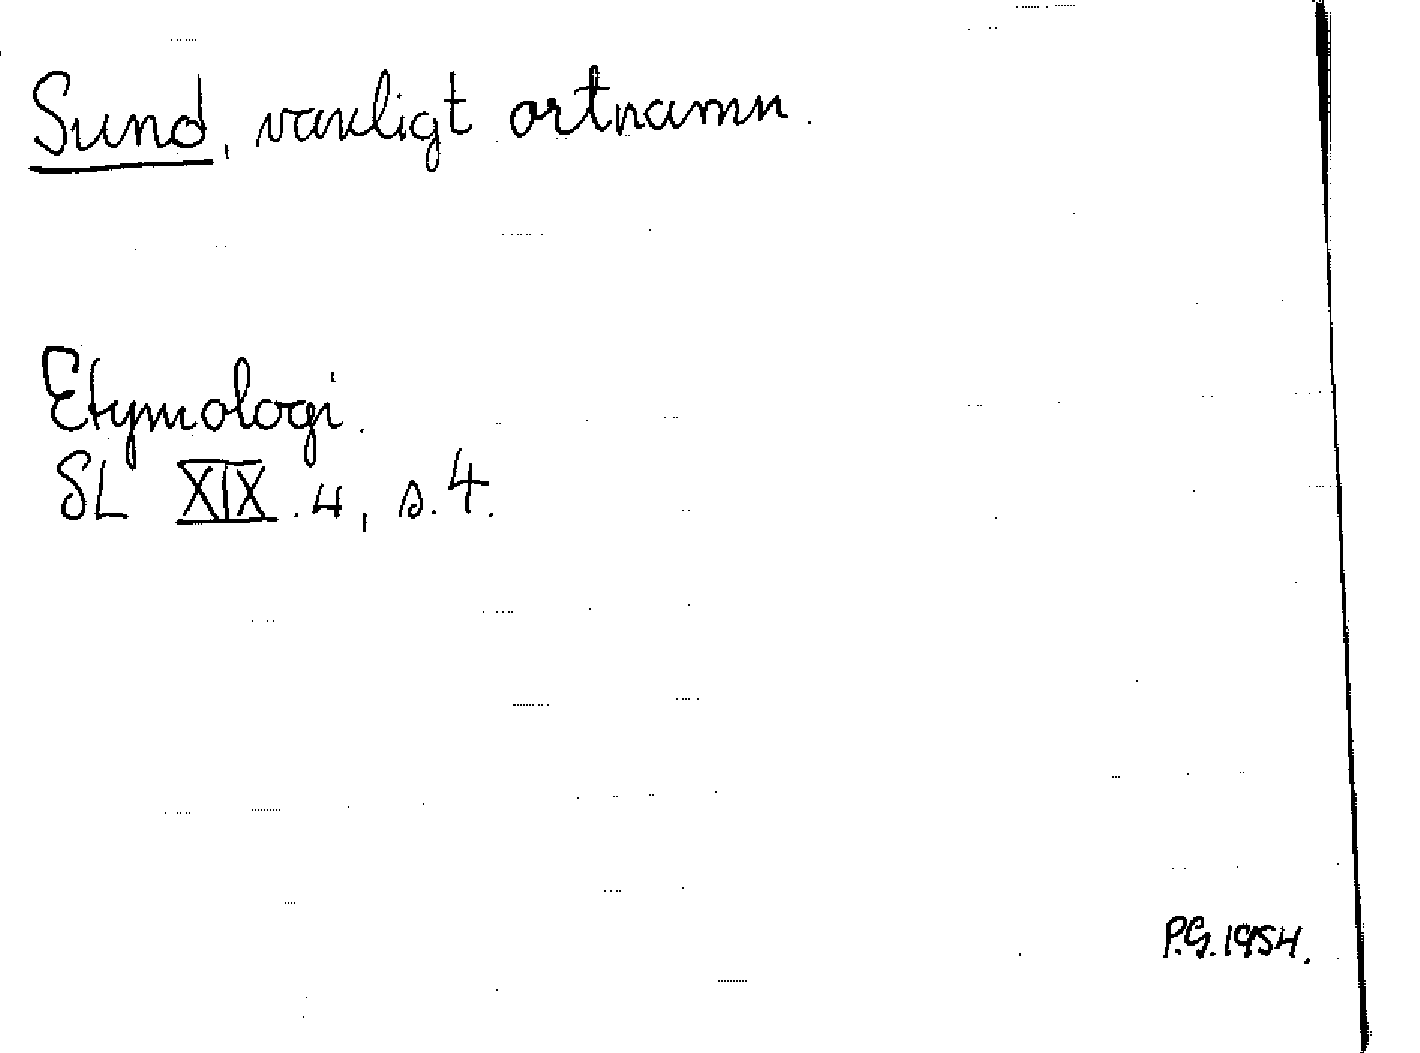 Sund, vanligt ortnamn.
Etymologi.
SL XIX.4, s.4.
P.G.1954.